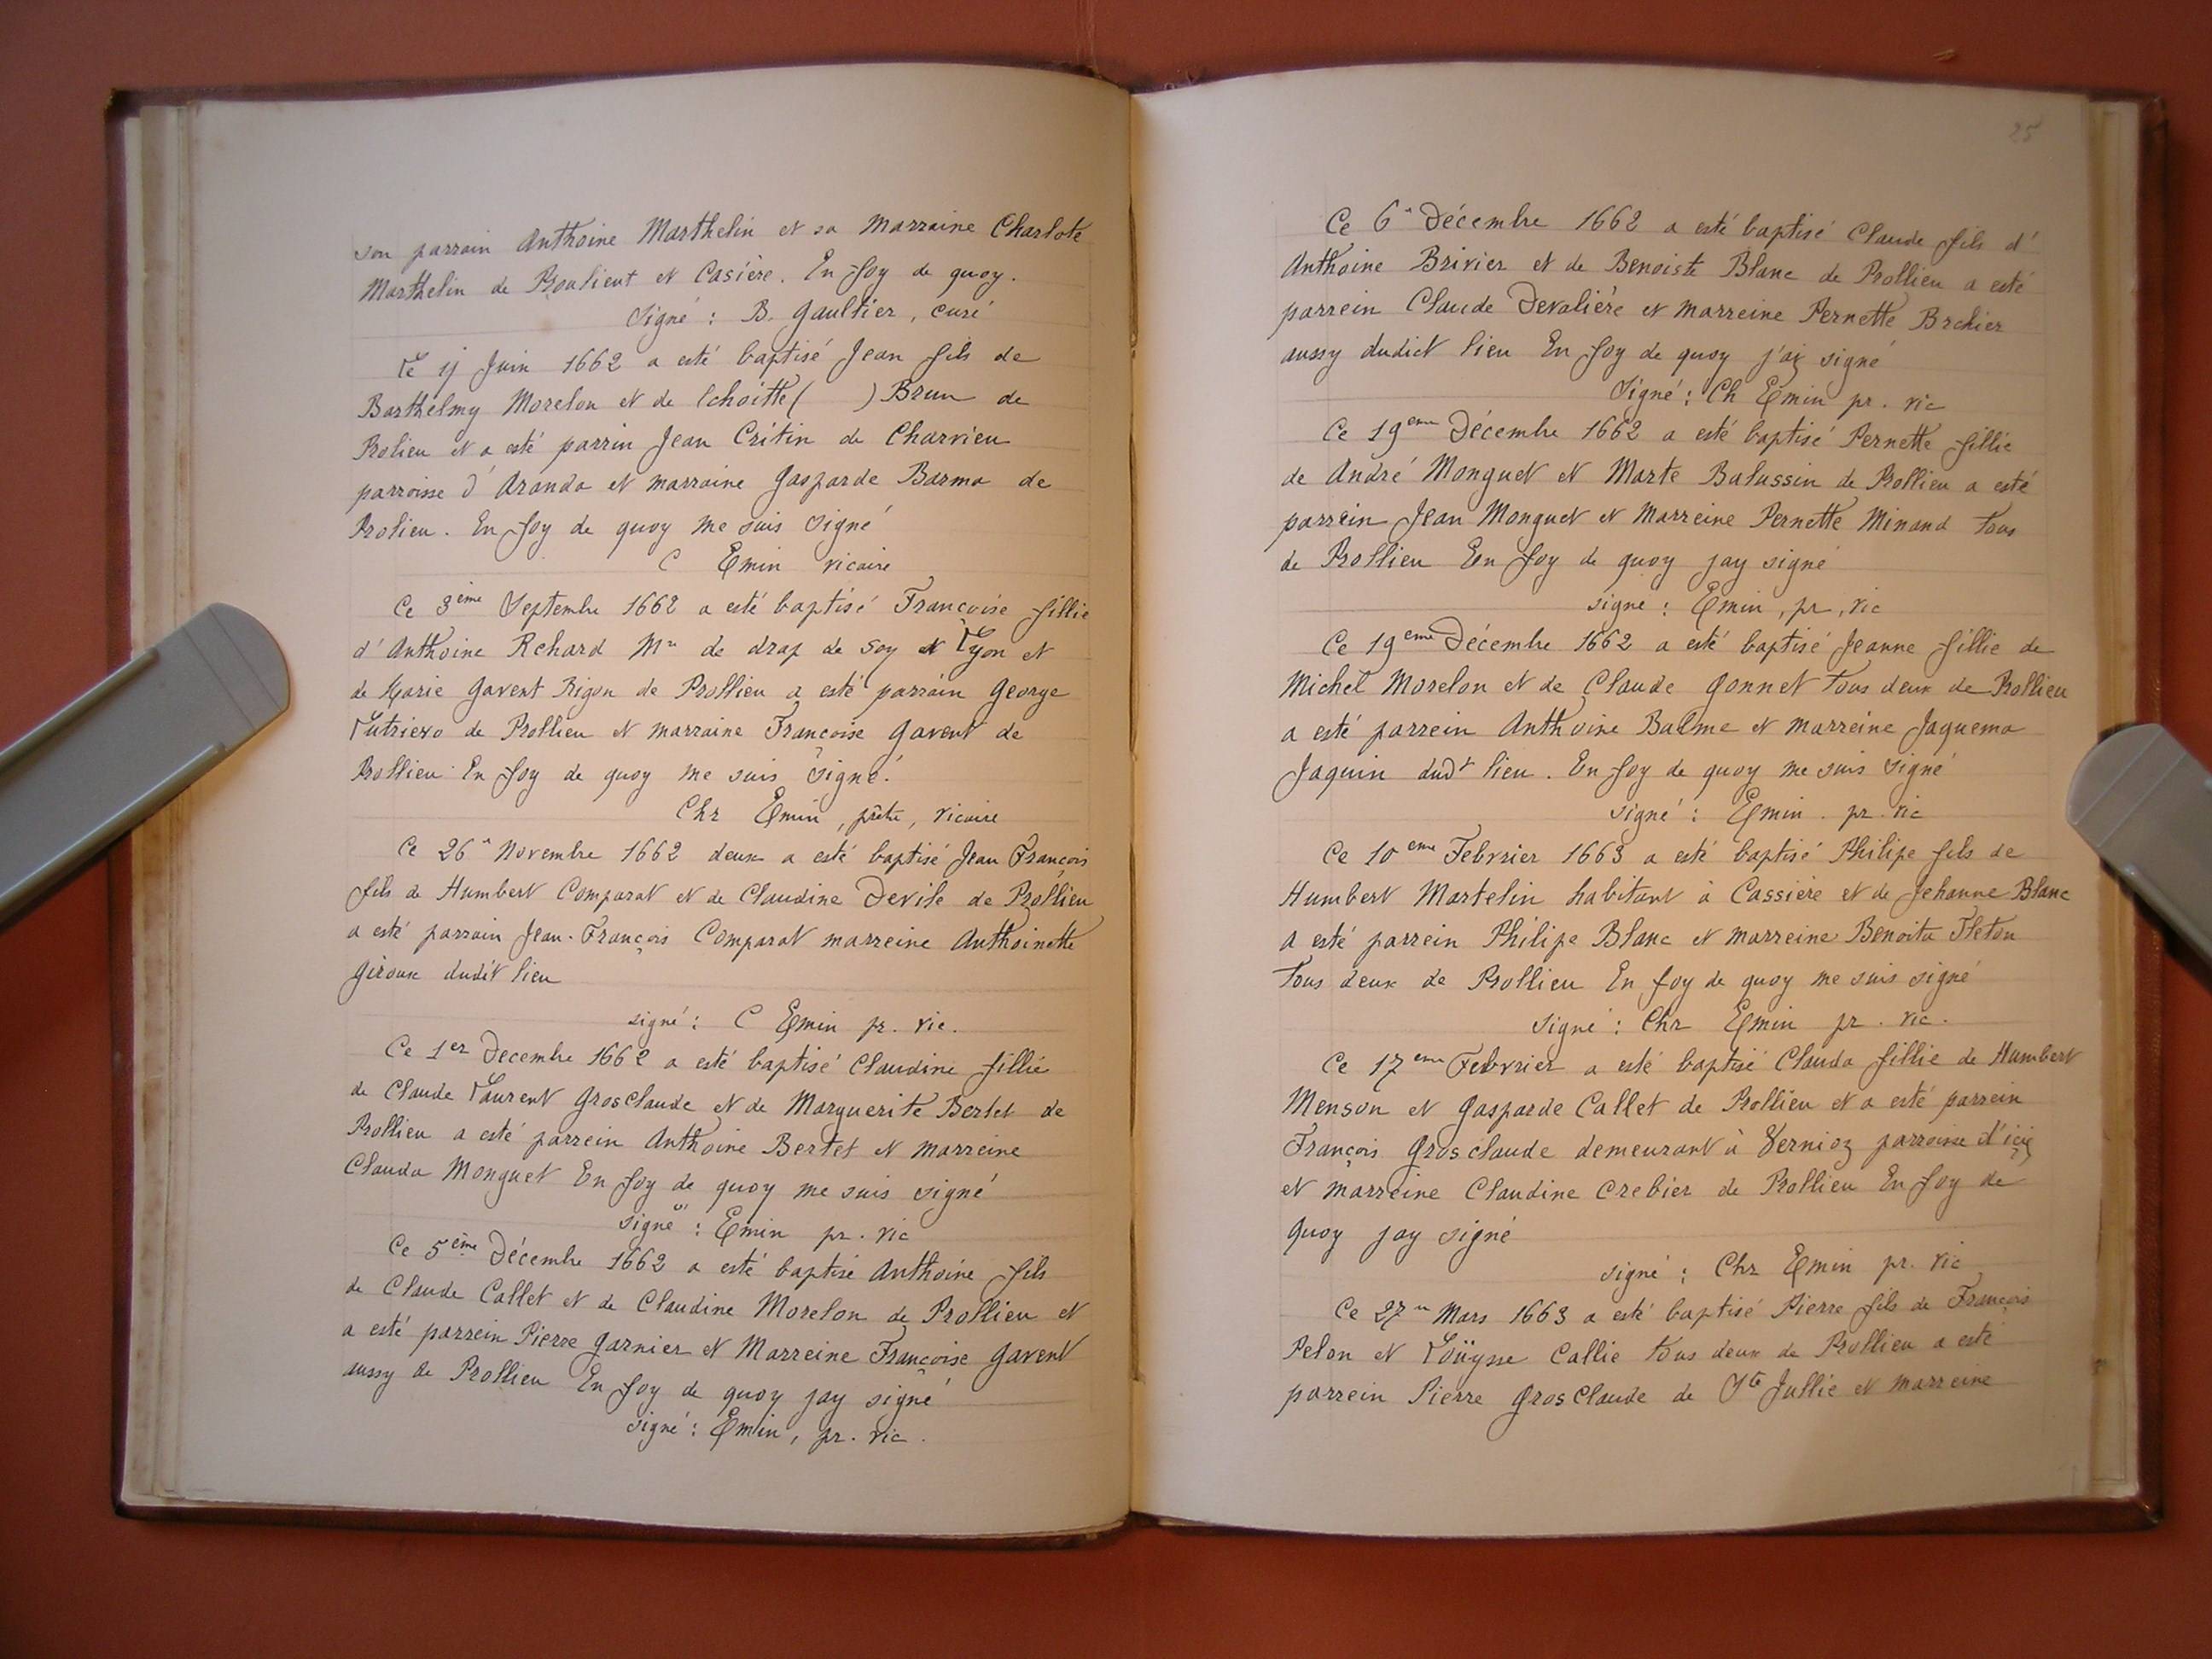 son parrain Anthoine Marthelin et sa Marraine Charlote
Marthelin de Proulieut et Casière. En foy de quoy.
Signé : B. Gaultier, curé
Le ij Juin 1662 a esté baptisé Jean fils de
Barthelmy Morelon et de ( ) Brun de
Prolieu et a esté parrin Jean Critin de Charvieu
parroisse d'Aranda et marraine Gasparde Barma de
Prolieu. En foy de quoy me suis signé
C Emin vicaire
Ce 3ème Septembre 1662 a esté baptisé Françoise fillie
d'Anthoine Rchard Mr de drap de soy et Lyon et
de Marie Gavent Rigon de Prollieu a esté parrain George
de Prollieu et marraine Françoise Gavent de
Prollieu En foy de quoy me suis signé.
Chr Emin, prêtre, vicaire
Ce 26e Novembre 1662 deux a esté baptisé Jean François
fils de Humbert Comparat et de Claudine Devile de Prollieu
a esté parrain Jean-François Comparat marreine Anthoinette
Giroux dudit lieu
signé : C Emin pr. vic.
Ce 1er Decembre 1662 a esté baptisé Claudine fillie
de Claude Laurent Grosclaude et de Marguerite Bertet de
Prollieu a esté parrein Anthoine Bertet et marreine
Clauda Monguet En foy de quoy me suis signé
signé : Emin pr. vic
Ce 5ème Décembre 1662 a esté baptisé Anthoine fils
de Claude Callet et de Claudine Morelon de Prollieu et
a esté parrein Pierre Garnier et Marreine Françoise Gavent
aussy de Prollieu En foy de quoy jay signé
signé : Emin, pr. vic.
25
Ce 6e Décembre 1662 a esté baptisé Claude fils d'
Anthoine Brivier et de Benoiste Blanc de Prollieu a esté
parrein Claude Devalière et marreine Pernette Brchier
aussy dudict lieu En foy de quoy j'ay signé
Signé : Ch Emin pr. vic
Ce 19eme Décembre 1662 a esté baptisé Pernette fillie
de André Monguet et Marte Balussin de Prollieu a esté
parrein Jean Monguet et Marreine Pernette Minand tous
de Prollieu En foy de quoy jay signé
signé : Emin, pr, vic
Ce 19eme Décembre 1662 a esté baptisé Jeanne fillie de
Michel Morelon et de Claude Gonnet tous deux de Prollieu
a esté parrein Anthoine Balme et marreine Jaquema
Jaquin dudt lieu. En foy de quoy me suis signé
signé : Emin. pr. vic
Ce 10eme Febvrier 1663 a esté baptisé Philipe fils de
Humbert Martelin habitant à Cassière et de Jehanne Blanc
a esté parrein Philipe Blanc et marreine Benoita
tous deux de Prollieu En foy de quoy me suis signé
Signé : Chr Emin pr. vic.
Ce 17eme Febvrier a esté baptisé Clauda fillie de Humbert
Menson et Gasparde Callet de Prollieu et a esté parrein
François Grosclaude demeurant à Vernioz parroisse d'icy
et marreine Claudine Crebier de Prollieu En foy de
quoy jay signé
signé : Chr Emin pr. vic
Ce 27e Mars 1663 a esté baptisé Pierre fils de François
Pelon et Loüysse Callie tous deux de Prollieu a esté
parrein Pierre Grosclaude de Ste Jullie et marreine